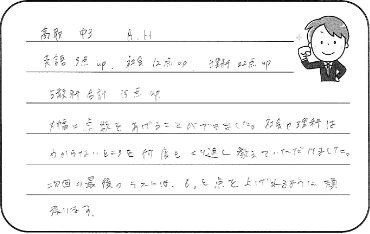 高取 中3 A.H
英語 9点up、社会 12点up、理科 22点up
5教科合計 15点up
大幅に点数をあげることができました。社会や理科は
わからないところを何度もくり返し教えていただけました。
次回の最後のテストは、もっと点を上げれるように頑
張ります。